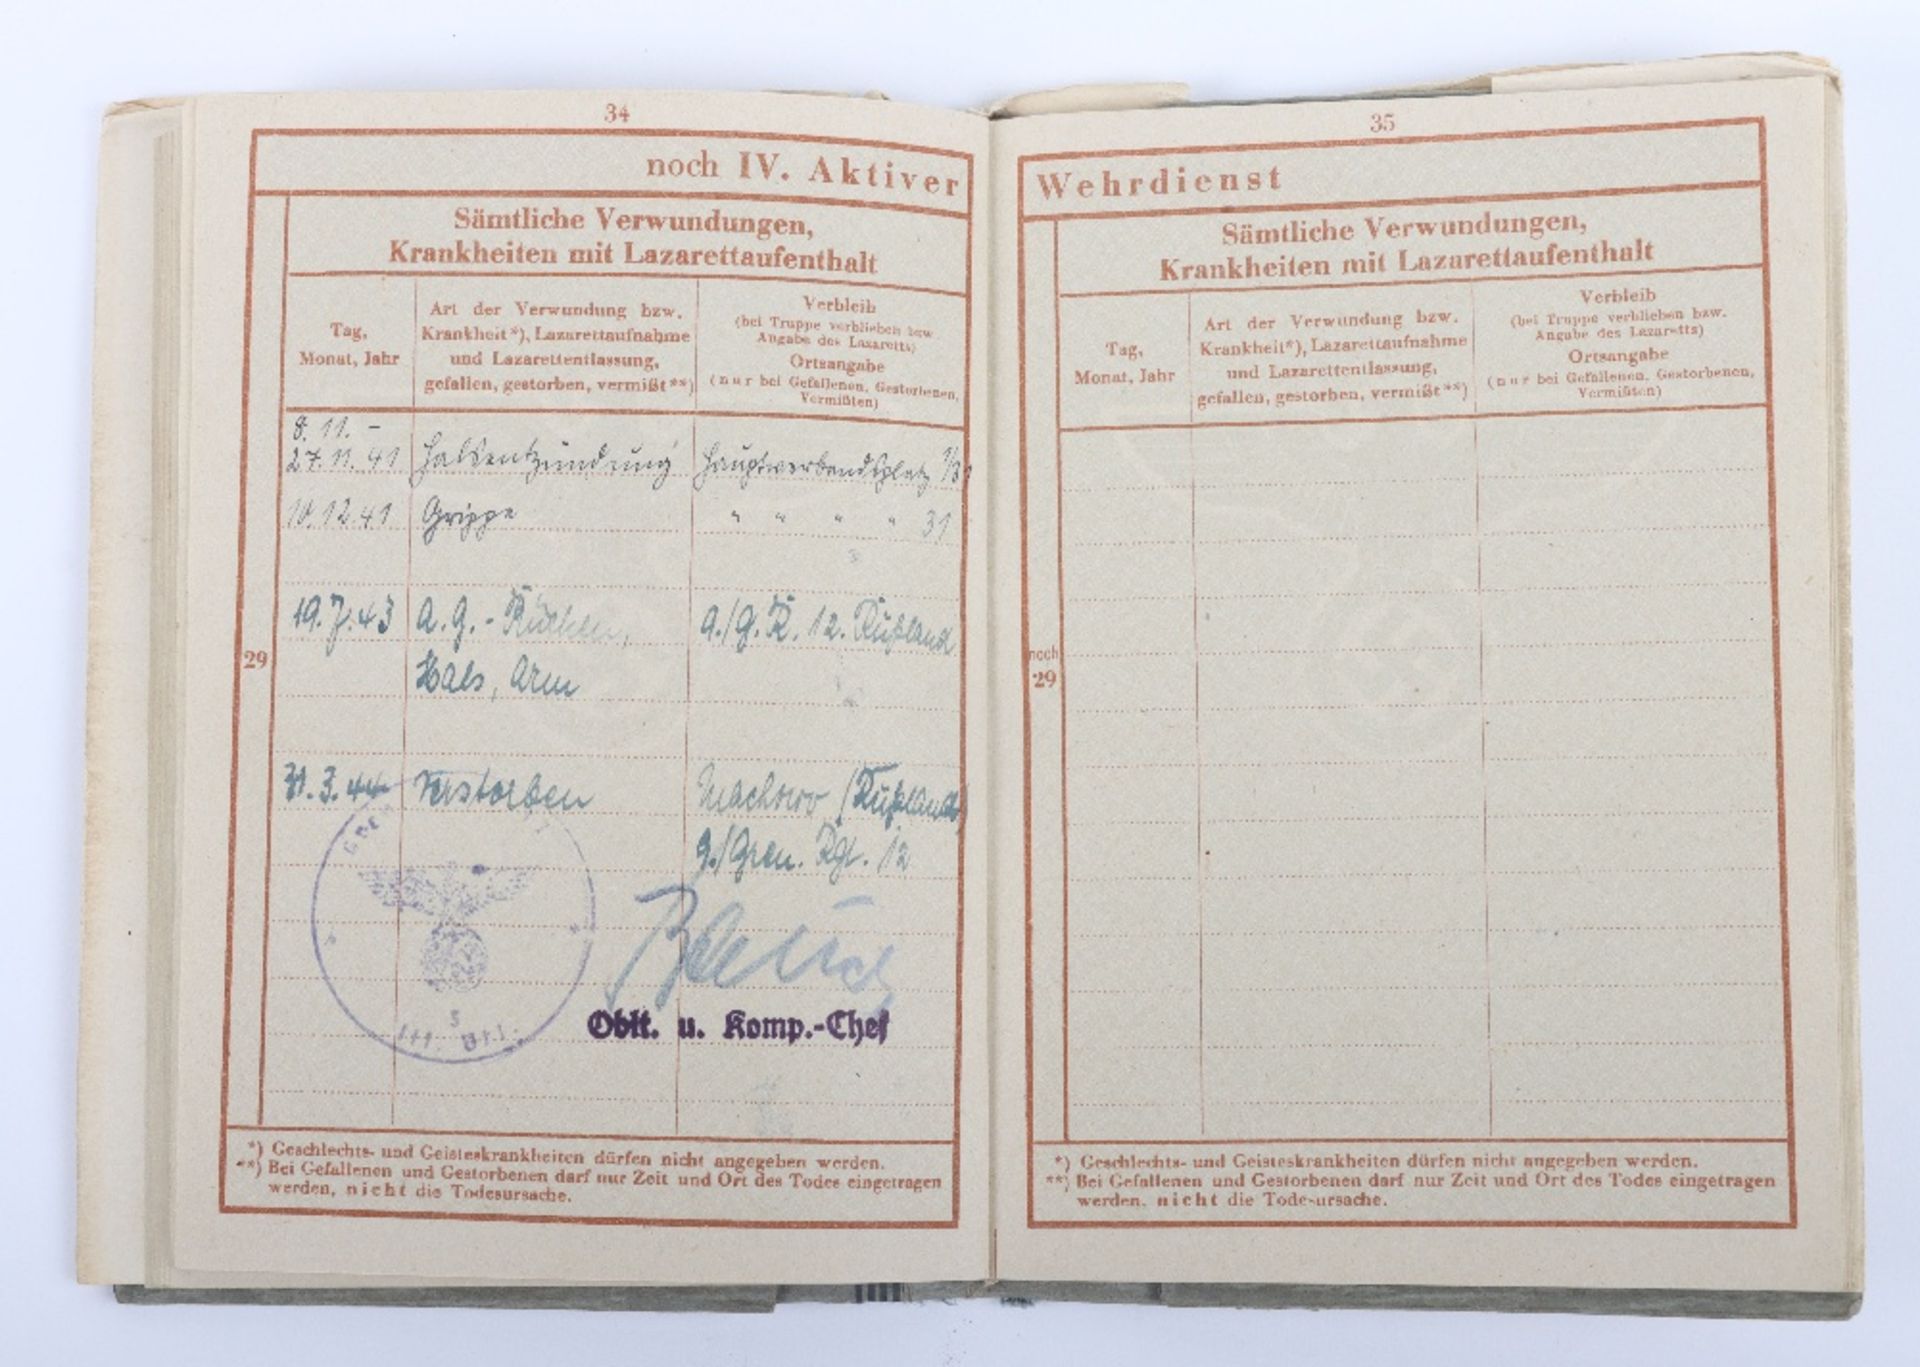 34
noch IV. Aktiver
Sämtliche Verwundungen,
Krankheiten mit Lazarettaufenthalt
Tag,
Monat, Jahr
Art der Verwundung bzw.
Krankheit*), Lazarettaufnahme
und Lazarettentlassung,
gefallen, gestorben, vermißt**)
Verbleib
(bei Truppe verblieben bzw
Angabe des Lazaretts)
Ortsangabe
(nur bei Gefallenen, Gestorbenen,
Vermißten)
29
8. 11. –
27. 11. 41 Halsentzündung Hauptverbandsplatz 1/31
10. 12. 41 Grippe " " " " 31
19. 7. 43 A. G. - Rücken, 9./G. R. 12. Rußland
Hals, Arm
31. 3. 44 Verstorben (Rußland)
9./Gren. Rgt. 12
Oblt. u. Komp.-Chef
*) Geschlechts- und Geisteskrankheiten dürfen nicht angegeben werden.
**) Bei Gefallenen und Gestorbenen darf nur Zeit und Ort des Todes eingetragen
werden, nicht die Todesursache.
35
Wehrdienst
Sämtliche Verwundungen,
Krankheiten mit Lazarettaufenthalt
Tag,
Monat, Jahr
Art der Verwundung bzw.
Krankheit*), Lazarettaufnahme
und Lazarettentlassung,
gefallen, gestorben, vermißt**)
Verbleib
(bei Truppe verblieben bzw.
Angabe des Lazaretts)
Ortsangabe
(nur bei Gefallenen, Gestorbenen,
Vermißten)
noch
29
*) Geschlechts- und Geisteskrankheiten dürfen nicht angegeben werden.
**) Bei Gefallenen und Gestorbenen darf nur Zeit und Ort des Todes eingetragen
werden, nicht die Todesursache.